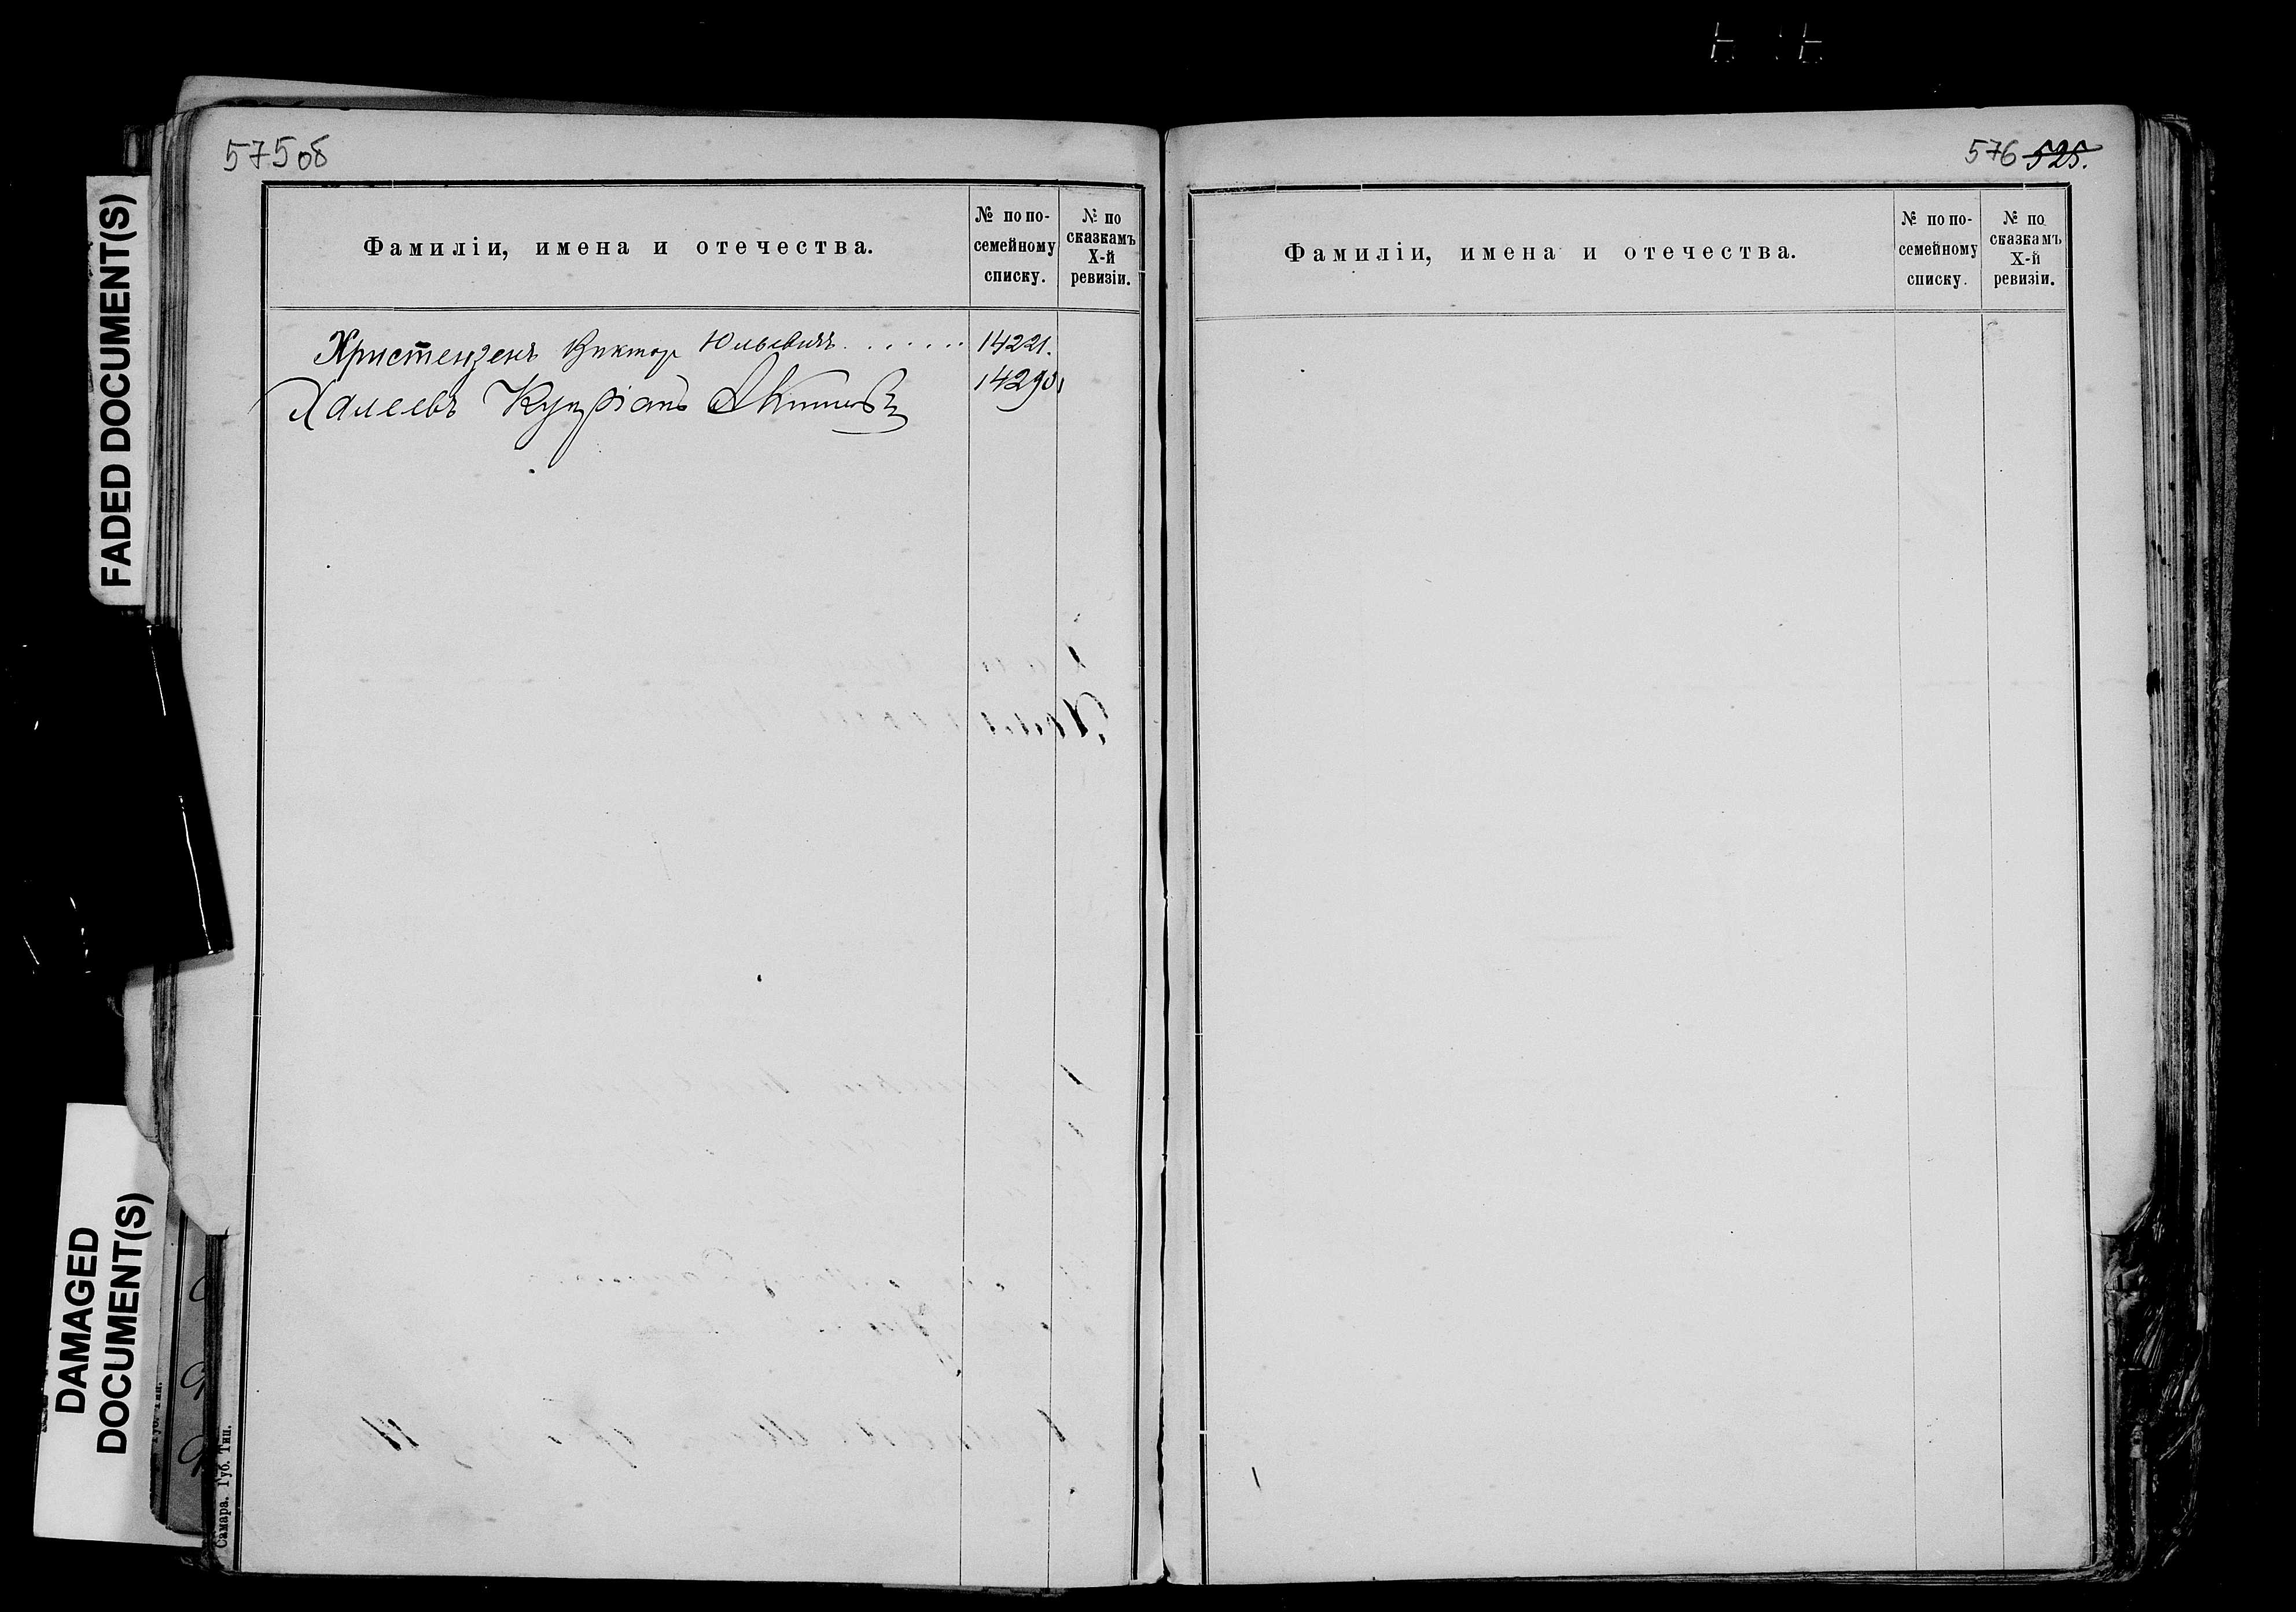 575 об
576 525.
Фамиліи, имена и отечества.
№ по по-
семейному
списку.
№ по
сказкамъ
X-й
ревизіи.
Христензенъ Виктор Юльевичъ . . . . . . 14221.
Халеевъ Купріанъ Акимов 14290
Самара. Губ. Тип.
Фамиліи, имена и отечества.
№ по по-
семейному
списку.
№ по
сказкамъ
X-й
ревизіи.
FADED DOCUMENT(S)
DAMAGED
DOCUMENT(S)